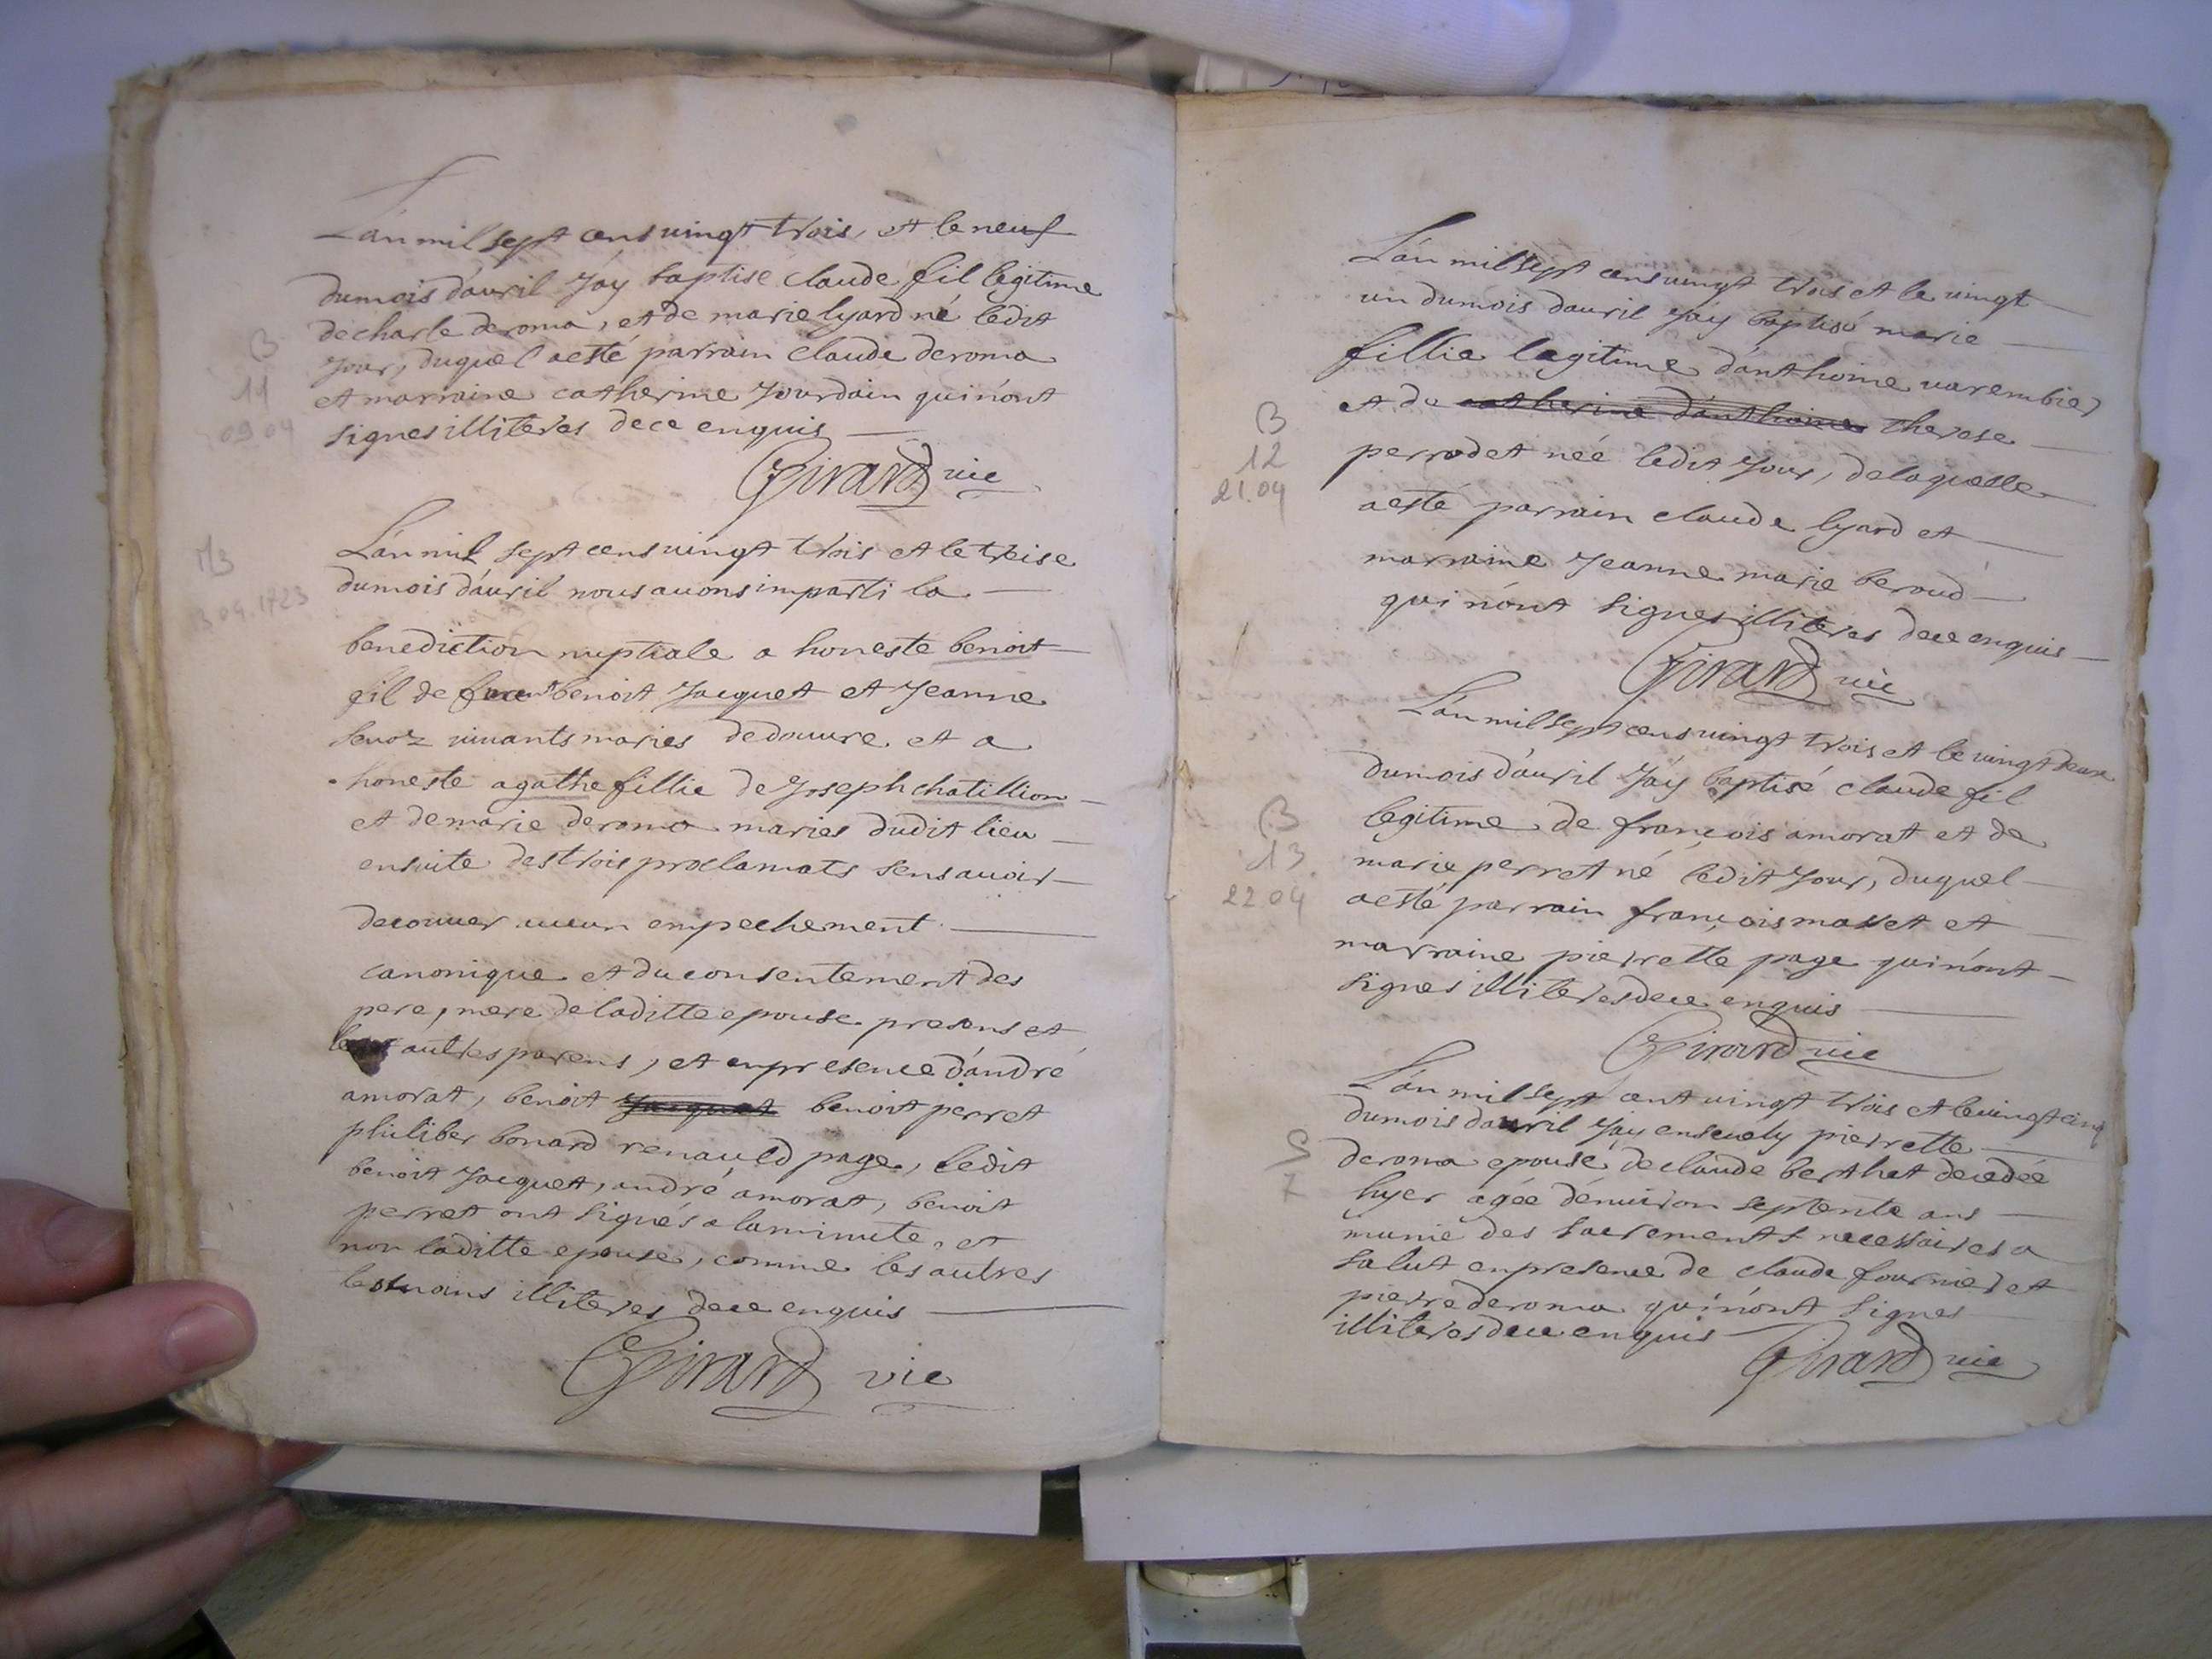 L'an mil sept cens vingt trois, et le neuf
du mois d'auril J'ay baptisé claude fil legitime
de charle deroma, et de marie lyard né ledit
Jour, duquel a esté parrain claude deroma
et marraine catherine Jourdain qui n'ont
signes illiteres de ce enquis
Girard vic
B
11
09 04
L'an mil sept cens vingt trois et le treise
du mois d'auril nous auons imparti la
benediction nuptiale a honeste benoit
fil de benoit Jacquet et Jeanne
viuants maries dedouure et a
honeste agathe fillie de Joseph chatillion
et de marie deroma maries dudit lieu
ensuite des trois proclamats sens auoir
decouuer aucun empechement
canonique et du consentement des
pere, mere de laditte epouse presens et
autres parens, et en presence d'andré
amorat, benoit Jacquet benoit perret
philiber bonard renauld page, ledit
benoit Jacquet, andré amorat, benoit
perret ont signés a la minute, et
non laditte epouse, comme les autres
illiteres de ce enquis
Girard vic
M3
3 04.1723
L'an mil sept cens vingt trois et le vingt
un du mois d'auril J'ay baptisé marie
fillie legitime d'anthoine varembier
et de catherine d'anthoine therese
perrodet née ledit Jour, de laquelle
a esté parrain claude lyard et
marraine Jeanne marie beroud
qui n'ont signes illiteres de ce enquis
Girard vic
B
12
21.04
L'an mil sept cens vingt trois et le vingt deux
du mois d'auril J'ay baptisé claude fil
legitime de françois amorat et de
marie perret né ledit Jour, duquel
a esté parrain françois et
marraine pierrette page qui n'ont
signes illiteres de ce enquis
Girard vic
B
13
22 04
L'an mil sept cent vingt trois et le vingt cinq
du mois d'auril J'ay enseuely pierrette
deroma epouse de claude berthet decedée
hyer agée d'enuiron septente ans
munie des sacrements necessaires a
salut en presence de claude fournier et
pierre deroma qui n'ont signes
illiteres de ce enquis
Girard vic
S
7